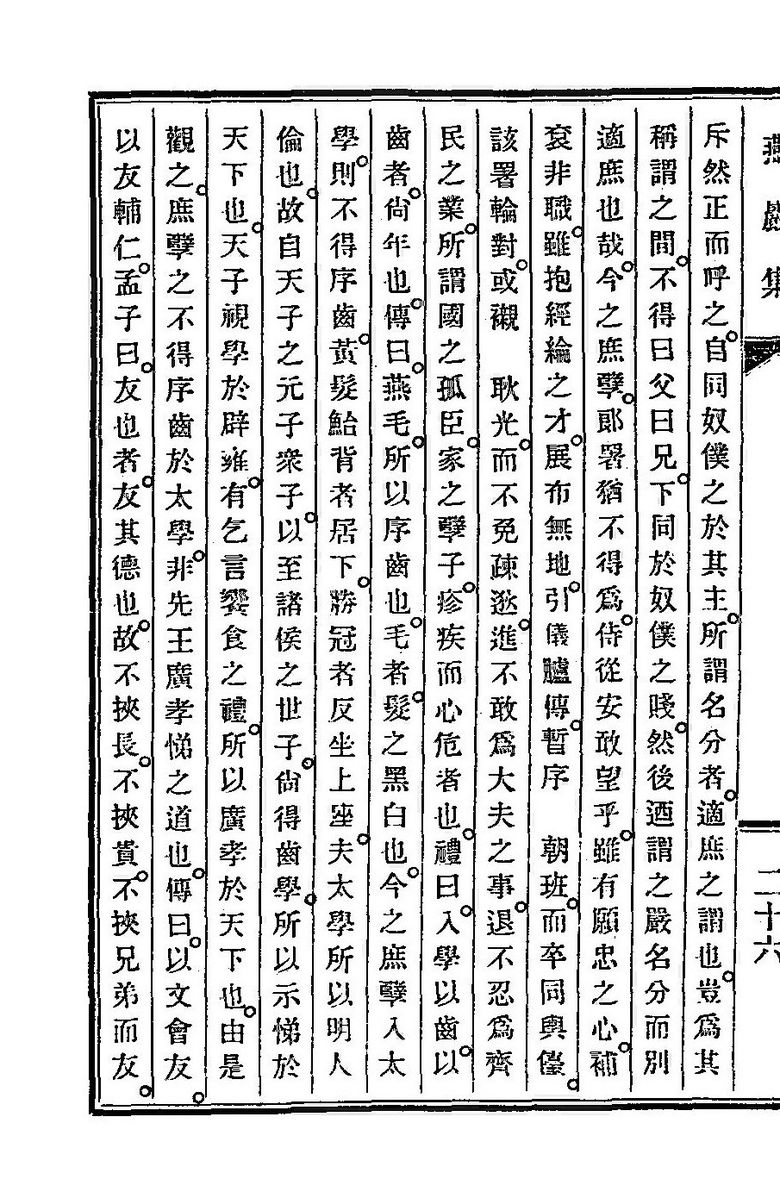 燕巖集
二十六
斥然正而呼之。自同奴僕之於其主。所謂名分者。適庶之謂也。豈爲其
稱謂之間。不得曰父曰兄。下同於奴僕之賤。然後迺謂之嚴名分而別
適庶也哉。今之庶孼。郞署猶不得爲。侍從安敢望乎。雖有願忠之心。補
袞非職。雖抱經綸之才。展布無地。引儀臚傳。暫序　朝班。而卒同輿儓。
該署輪對。或襯　耿光。而不免疎逖。進不敢爲大夫之事。退不忍爲齊
民之業。所謂國之孤臣。家之孼子。疹疾而心危者也。禮曰。入學以齒。以
齒者。尙年也。傳曰。燕毛。所以序齒也。毛者。髮之黑白也。今之庶孼入太
學。則不得序齒。黃髮鮐背者居下。勝冠者反坐上座。夫太學所以明人
倫也。故自天子之元子衆子。以至諸侯之世子。尙得齒學。所以示悌於
天下也。天子視學於辟雍。有乞言饗食之禮。所以廣孝於天下也。由是
觀之。庶孼之不得序齒於太學。非先王廣孝悌之道也。傳曰。以文會友。
以友輔仁。孟子曰。友也者。友其德也。故不挾長。不挾貴。不挾兄弟而友。